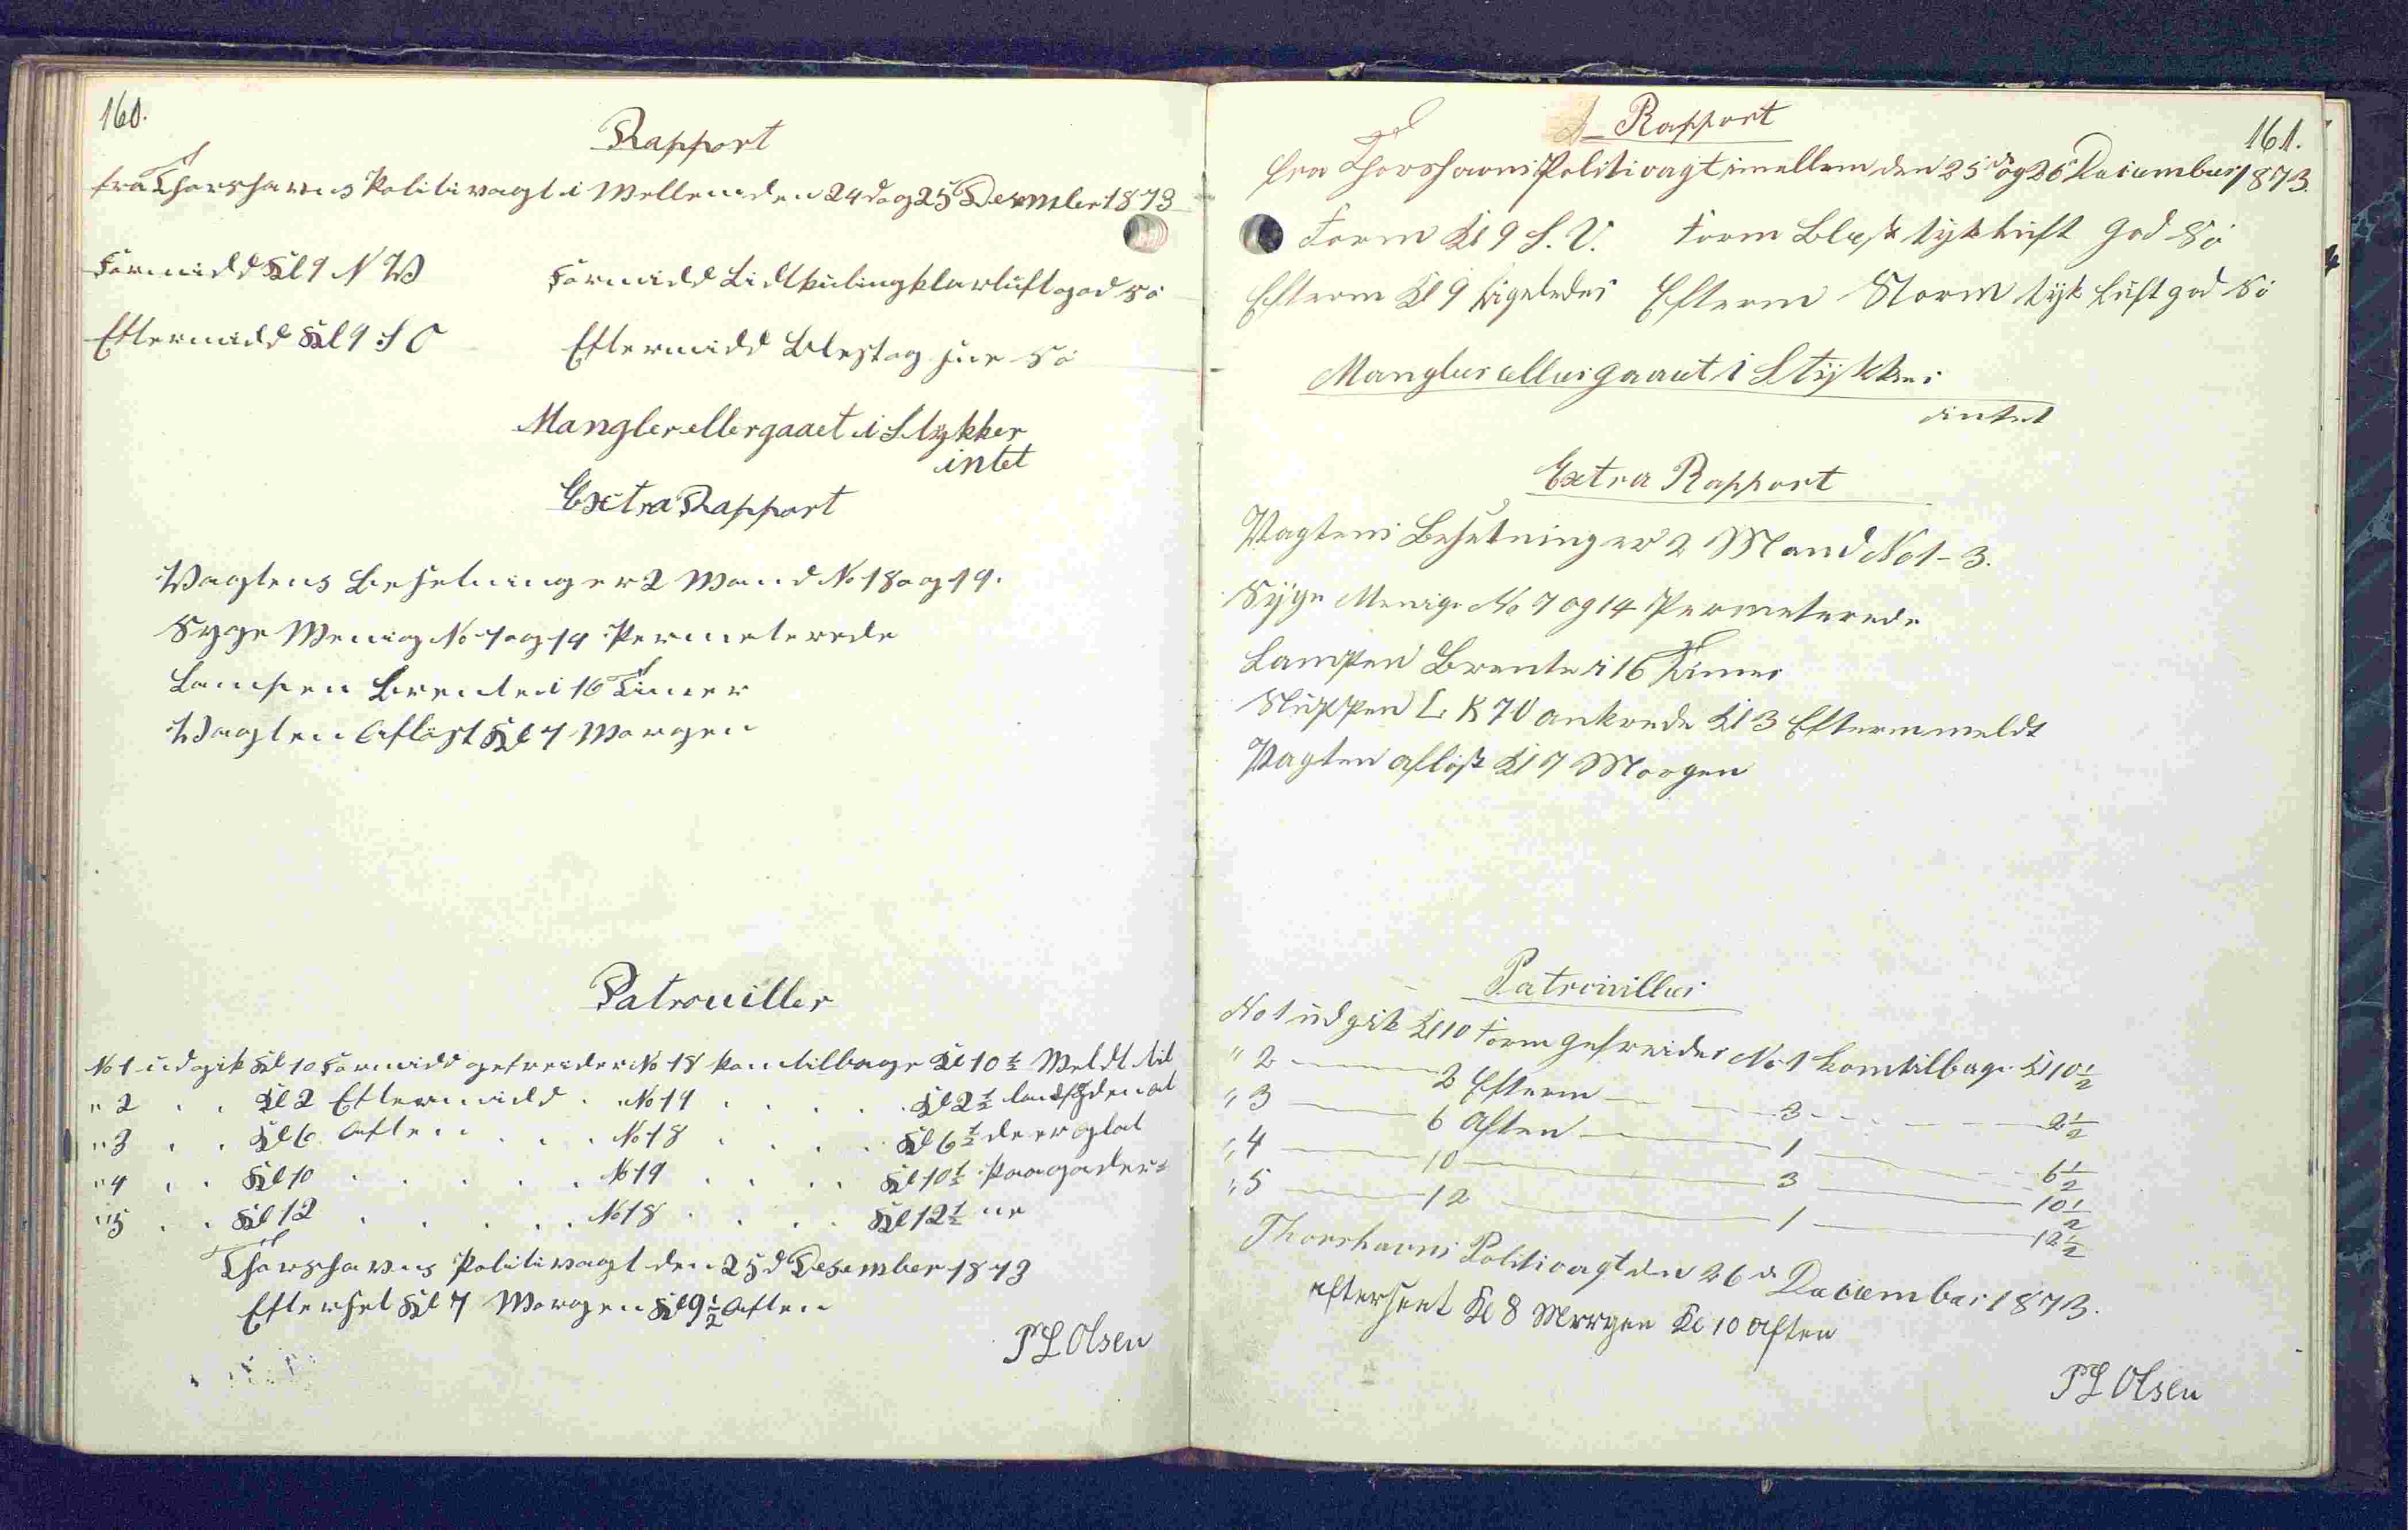 160.
Rapport
fra Thorshavns Politivagt i Mellem den 24d og 25 Desember 1873
Formidd Kl 9 N W Formidd Lidt kuling klar luft god Sö
Eftermidd Kl 9 S O Eftermidd Blest og Sö
Mangler eller gaaet i Stykker
intet
Extra Rapport
Vagtens Besetning er 2 Mand No 18 og 19.
Syge Menig No 7 og 14 Permeterede
Lampen Brente i 16 Timer
Vagten Aflöst Kl 7 Morgen
Patrouiller
No 1 udgik Kl 10 Formidd gefreider No 18 kom tilbage Kl 10 1/2 Meldt til
" 2 . . Kl 2 Eftermidd . No 19 . . . . Kl 2 1/2 at
" 3 . . Kl 6 Aften . . . No 18 . . . . Kl 6 1/2 de er glat
" 4 . . Kl 10 . . . . . No 19 . . . . Kl 10 1/2 Paa gader=
" 5 . . Kl 12 . . . . . No 18 . . . . Kl 12 1/2 ne
Thorshavns Politivagt den 25d Desember 1873
Efterset Kl 7 Morgen Kl 9 1/2 Aften
P L Olsen
161.
Rapport
fra Thorshavns Politivagt imellem den 25d og 26 December 1873.
Form Kl 9 S. V. Form Blest tyk luft god Sö
Efterm Kl 9 ligeledes Efterm Storm tyk luft god Sö
Mangler eller gaaet i Stykker
intet
Extra Rapport
Vagtens Besetning er 2 Mand No 1 - 3.
Syge Menige No 7 og 14 Permeterede
Lampen Brente i 16 Timer
Sluppen L K 70 ankrede Kl 3 Efterm meldt
Vagten aflöst Kl 7 Morgen
Patrouiller
No 1 udgik Kl 10 Form gefreider No 1 kom tilbage Kl 10 1/2
" 2 — 2 Efterm — 3 — 2 1/2
" 3 — 6 Aften — 1 — 6 1/2
" 4 — 10 — 3 — 10 1/2
" 5 — 12 — 1 — 12 1/2
Thorshavns Politivagt den 26 d December 1873.
efterseet Kl 8 Morgen Kl 10 Aften
P L Olsen